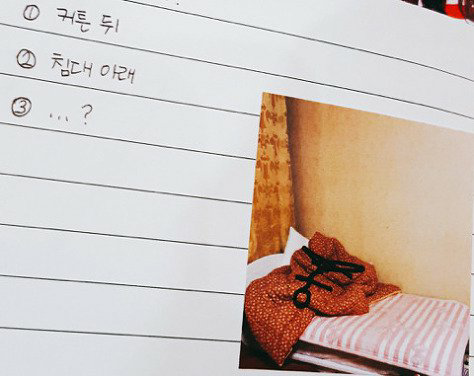 ① 커튼 뒤
② 침대 아래
③ ...?